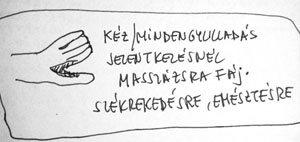 KÉZ/MINDENGYULLADÁS
JELENTKEZÉSNÉL
MASSZÁZSRA FÁJ.
SZÉKREKEDÉSRE, EMÉSZTÉSRE